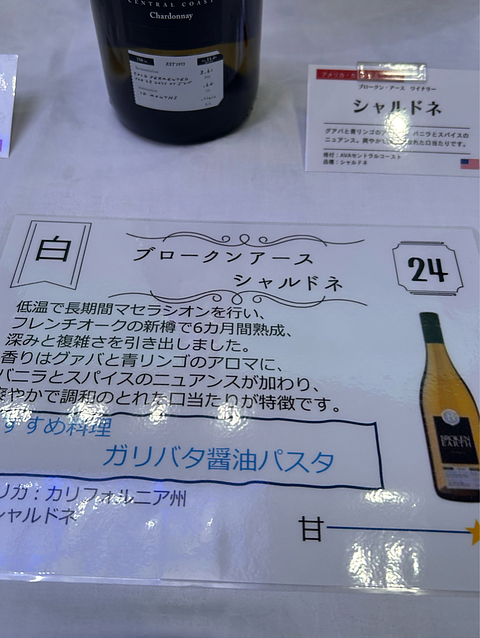 CENTRAL COAST
Chardonnay
EST 1973
ブロークン・アース ワイナリー
シャルドネ
グアバと青リンゴの
バニラとスパイスの
ニュアンス。爽や
れた口当たりです。
格付：AVAセントラルコースト
品種：シャルドネ
白
ブロークンアース
シャルドネ
24
低温で長期間マセラシオンを行い、
フレンチオークの新樽で6カ月間熟成、
深みと複雑さを引き出しました。
香りはグァバと青リンゴのアロマに、
バニラとスパイスのニュアンスが加わり、
爽やかで調和のとれた口当たりが特徴です。
すすめ料理
ガリバタ醤油パスタ
リカ：カリフォルニア州
シャルドネ
BROKEN
EARTH
甘